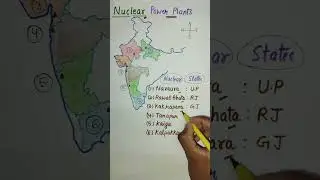 Nuclear Power Plants
States
④
⑤
Nuclear States
(1) Narora : U.P
(2) Rawatbhata : RJ
(3) Kakrapara : GJ
(4) Tarapur
(5) Kaiga
(6) Kalpakka
U.P
hata : RJ
ara : GJ